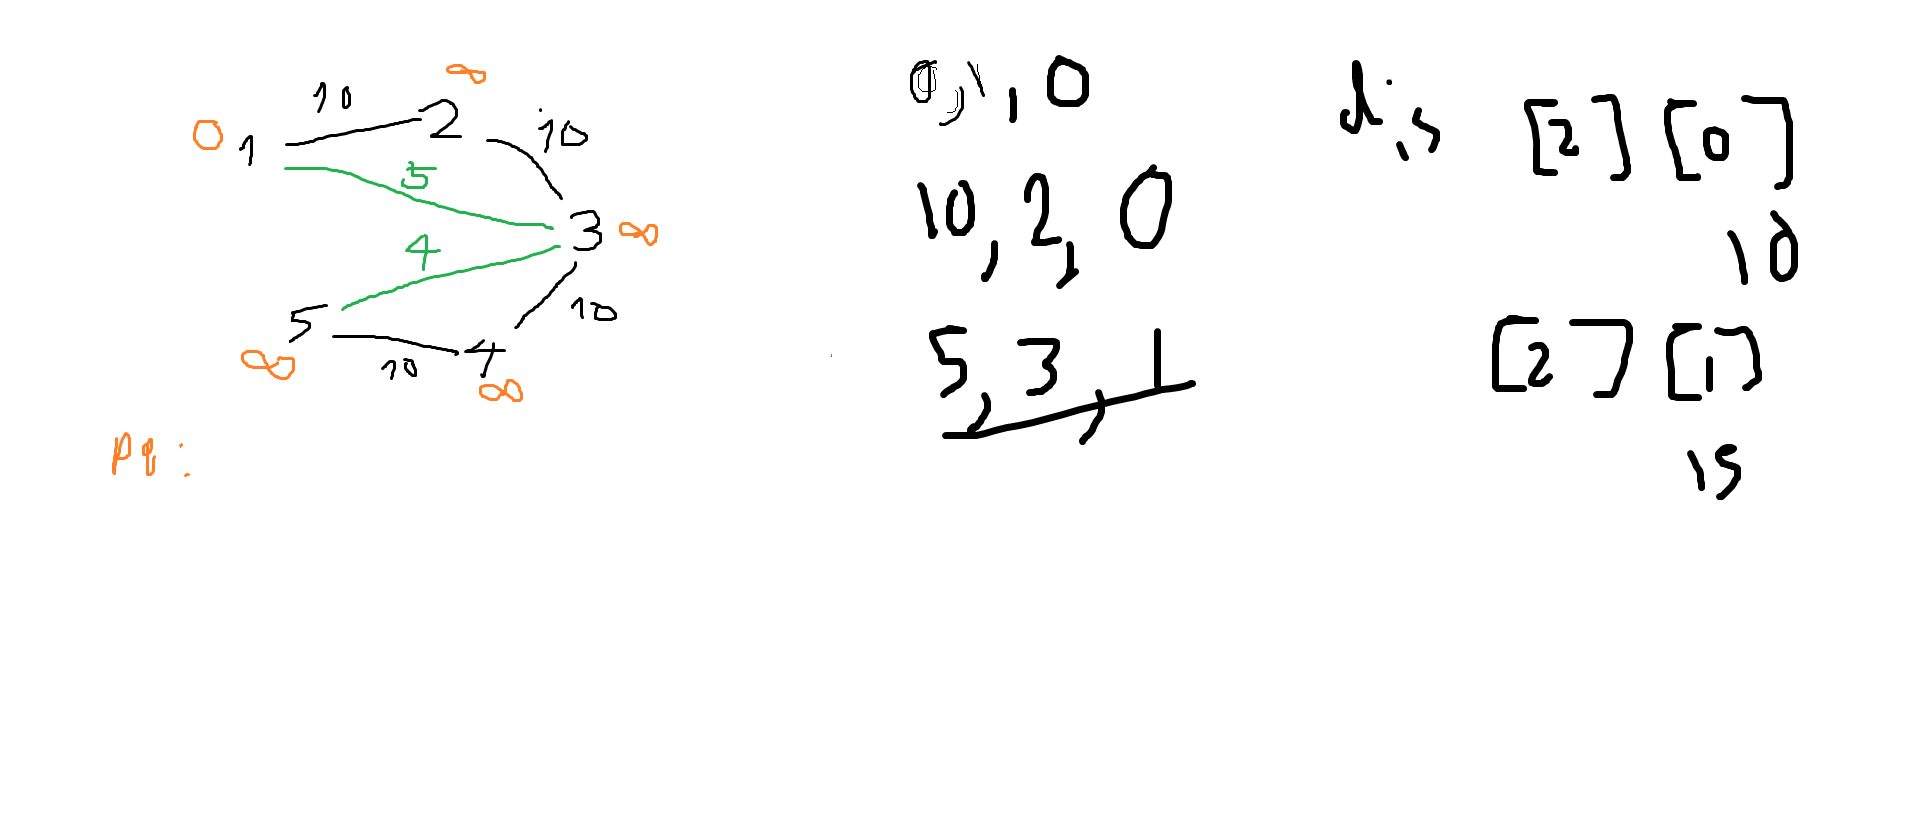 ∞
10
2
0 1
10
5
3 ∞
4
5
10
∞
10
4
∞
Pq :
0, 1, 0
10, 2, 0
5, 3, 1
dis [2] [0]
10
[2] [1]
15